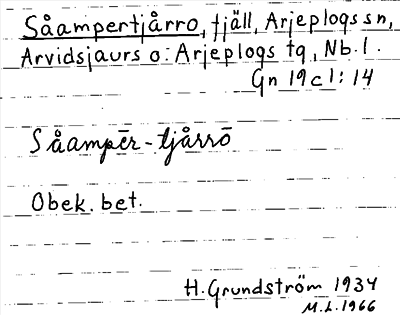 Såampertjårro, fjäll, Arjeplogs sn,
Arvidsjaurs o. Arjeplogs tg, Nb. l.
Gn 19 c 1:14
Såampēr-tjårrō
Obek. bet.
H. Grundström 1934
M.L. 1966